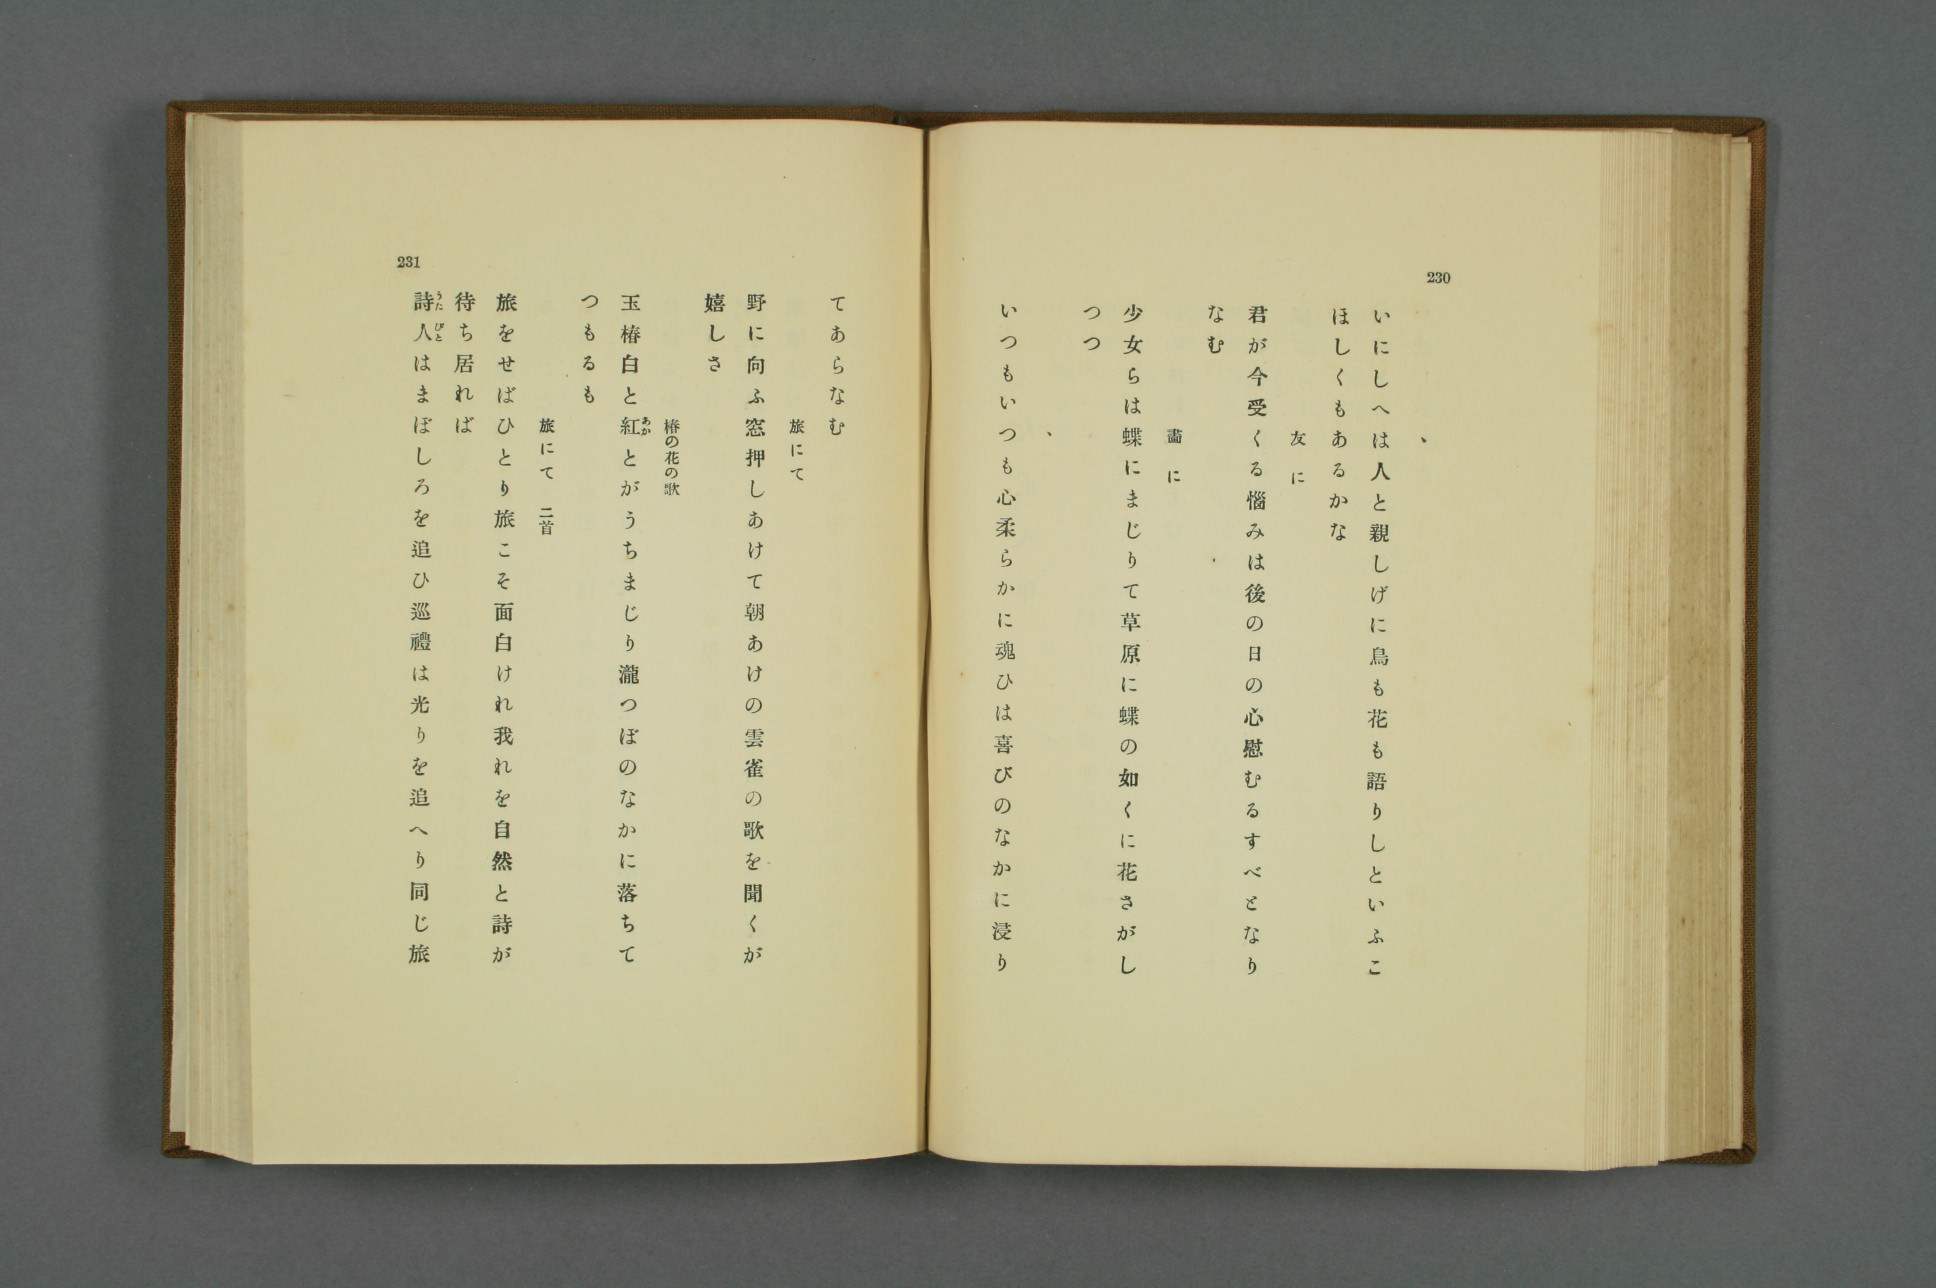 230
、
いにしへは人と親しげに鳥も花も語りしといふこ
ほしくもあるかな
友に
君が今受くる惱みは後の日の心慰むるすべとなり
なむ
畵に
少女らは蝶にまじりて草原に蝶の如くに花さがし
つつ
、
いつもいつも心柔らかに魂ひは喜びのなかに浸り
231
てあらなむ
旅にて
野に向ふ窓押しあけて朝あけの雲雀の歌を聞くが
嬉しさ
椿の花の歌
玉椿白と紅とがうちまじり瀧つぼのなかに落ちて
あか
つもるも
旅にて 二首
旅をせばひとり旅こそ面白けれ我れを自然と詩が
待ち居れば
詩人はまぼしろを追ひ巡禮は光りを追へり同じ旅
うたびと